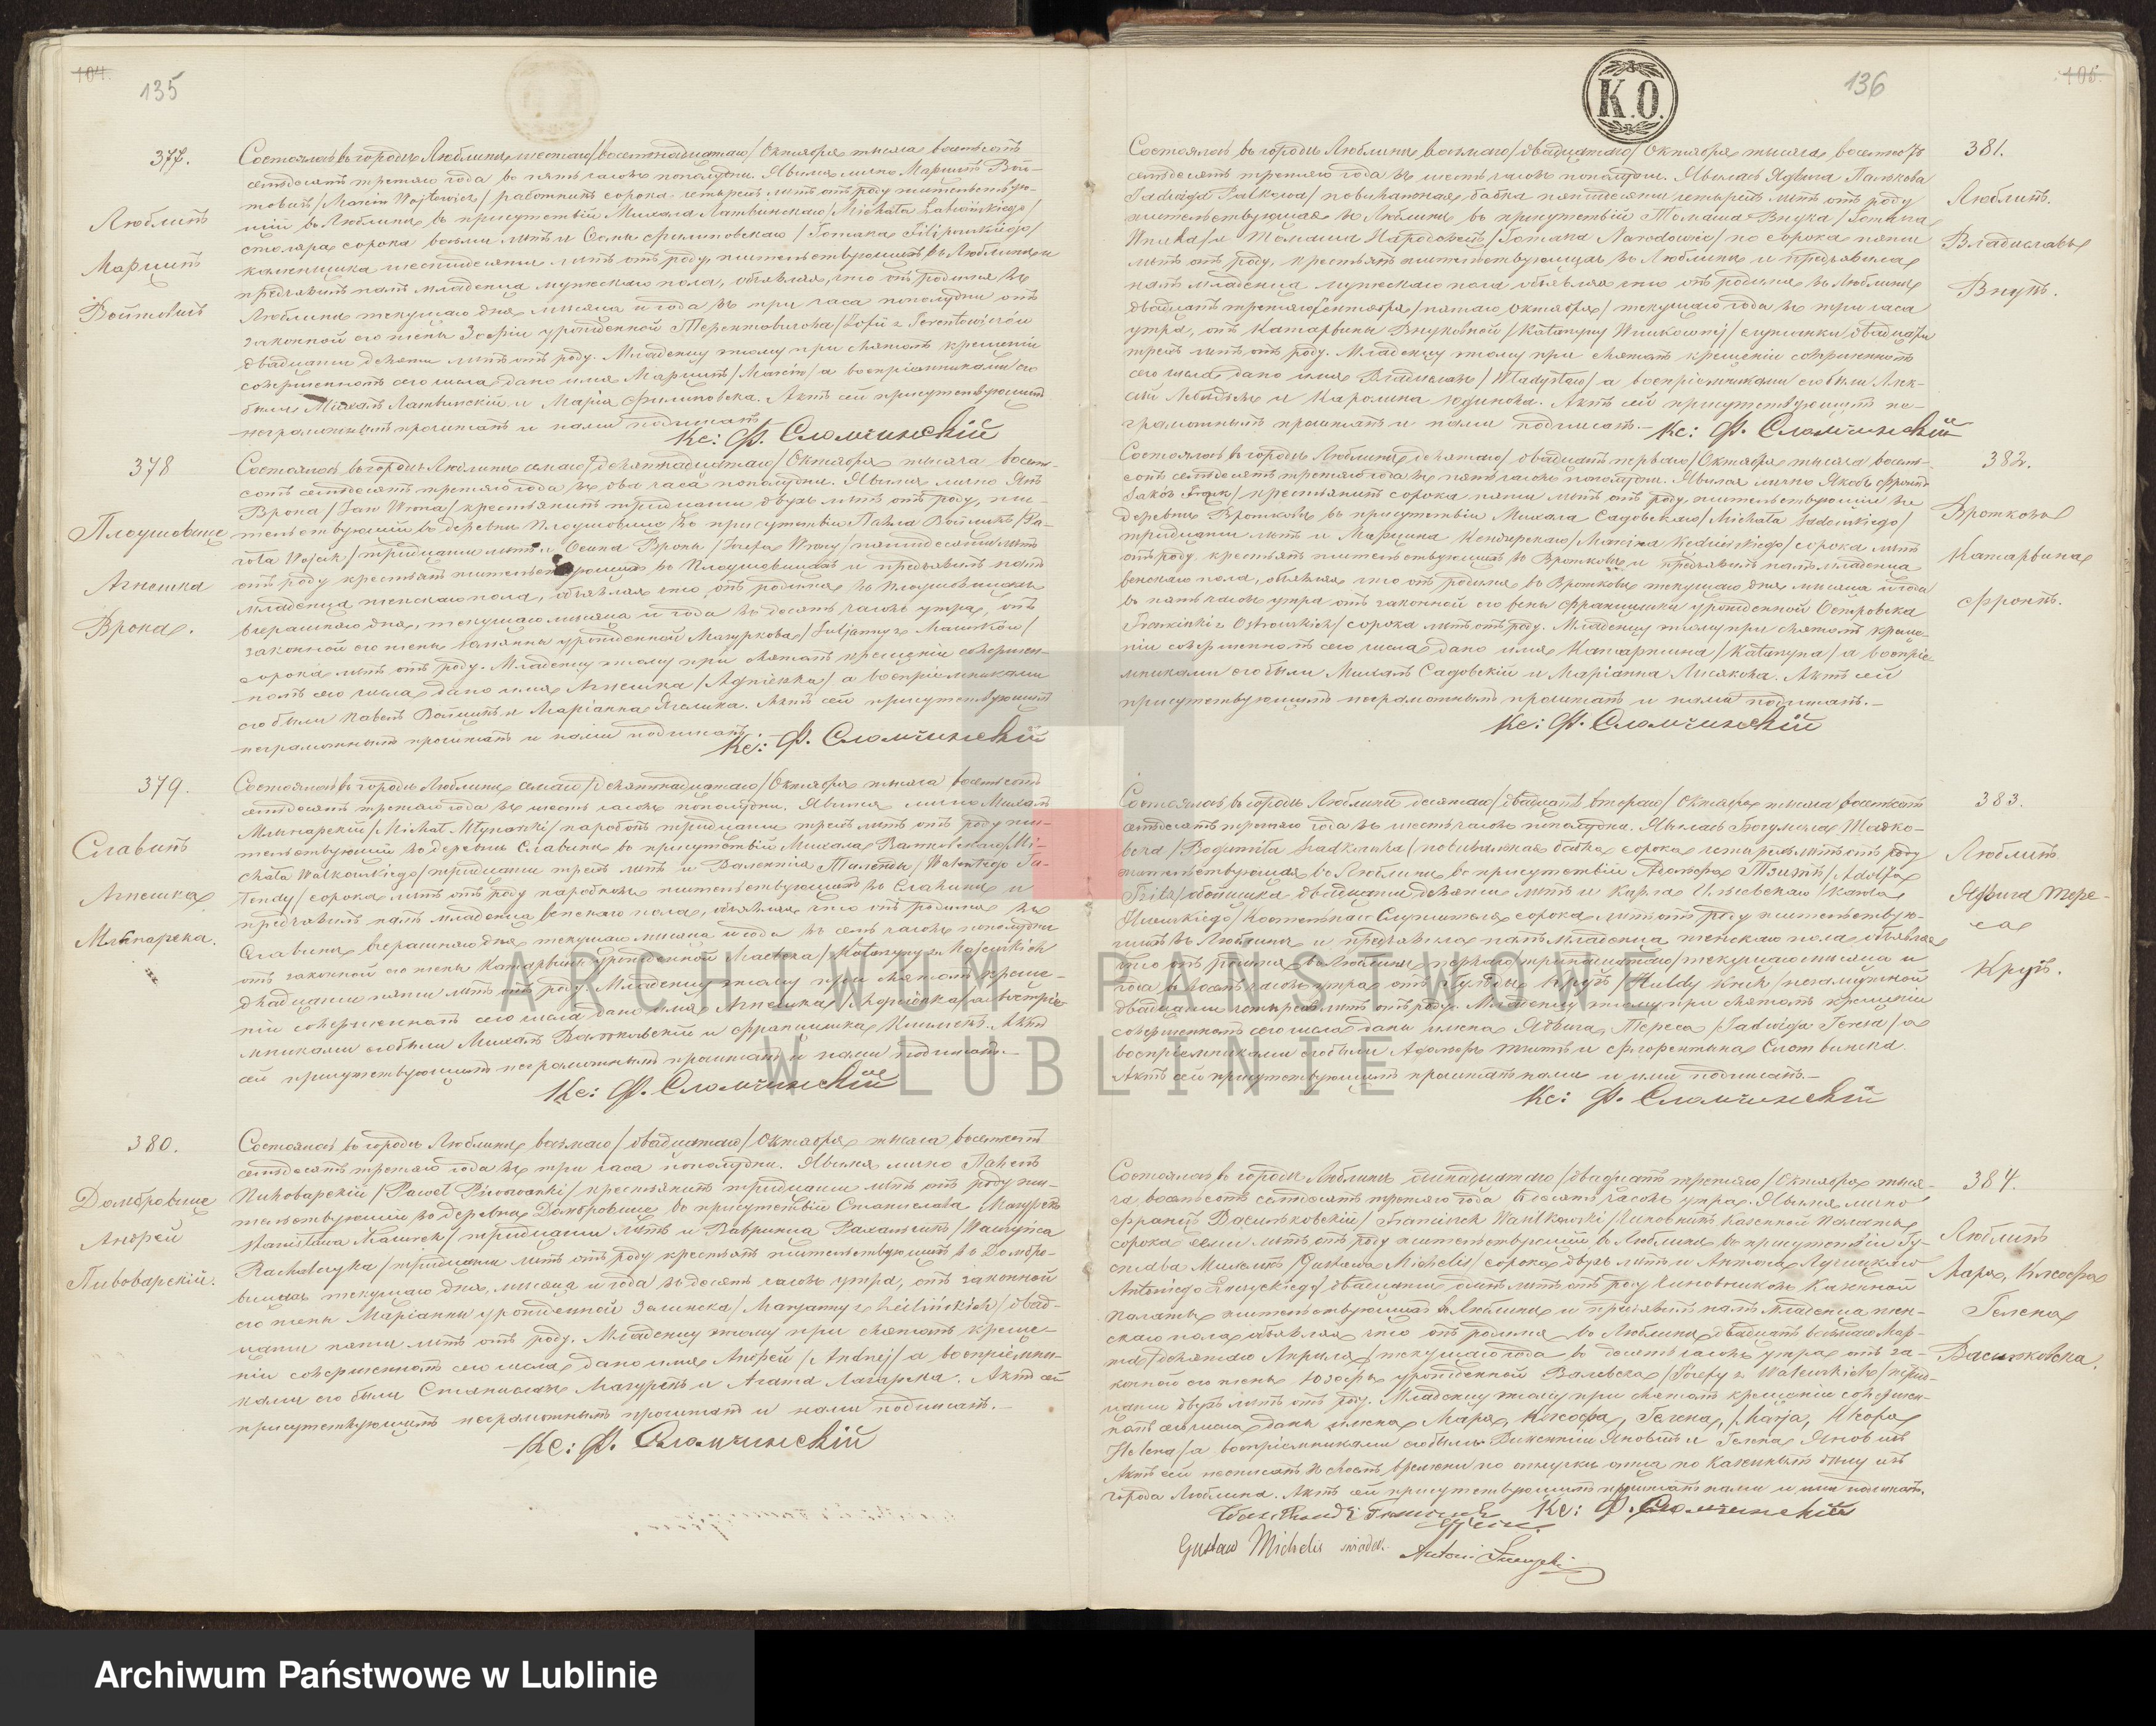 104.
135
377.
Люблинъ
Марцинъ
Войтовичъ
Состоялось въ городѣ Люблинѣ шестаго /восемнадцатаго/ Октября тысяча восемьсотъ
семьдесятъ третьяго года въ пять часовъ пополудни. Явился лично Марцинъ Вой-
товичъ /Marcin Wojtowicz/ работникъ сорока четырехъ лѣтъ отъ роду жительствую-
щій въ Люблинѣ въ присутствіи Михала Латвинскаго /Michała Latwińskiego/
столяра сорока восьми лѣтъ и Филиповскаго /Tomaka Filipowskiego/
каменщика шестидесяти лѣтъ отъ роду, жительствующихъ въ Люблинѣ и
предъявилъ намъ младенца мужескаго пола, объявляя, что онъ родился въ
Люблинѣ текущаго дня мѣсяца и года въ три часа пополудни отъ
законной его жены Зофіи урожденной Терентовичова /Zofii z Terentowiczów/
двадцати девяти лѣтъ отъ роду. Младенцу этому при святомъ крещеніи
совершенномъ сего числа дано имя Марцинъ /Marcin/ а воспріемниками его
были Михалъ Латвинскій и Марія Филиповска. Актъ сей присутствующимъ
неграмотнымъ прочитанъ и нами подписанъ.
Кс: Ф. Сломчинскій
378
Плоушовице
Агнешка
Врона.
Состоялось въ городѣ Люблинѣ седьмаго /девятнадцатаго/ Октября тысяча восемь-
сотъ семьдесятъ третьяго года въ два часа пополудни. Явился лично Янъ
Врона /Jan Wrona/ крестьянинъ тридцати двухъ лѣтъ отъ роду, жи-
тельствующій въ деревнѣ Плоушовице въ присутствіи Павла Войцикъ /Pa-
wła Wojcik/ тридцати лѣтъ и Осипа Вроны /Józefa Wrony/ пятидесяти лѣтъ
отъ роду крестьянъ жительствующихъ въ Плоушовицахъ и предъявилъ намъ
младенца женскаго пола, объявляя что онъ родился въ Плоушовицахъ
вчерашняго дня, текущаго мѣсяца и года въ десять часовъ утра, отъ
законной его жены урожденной Мазуркова /Juljanny z Mazurków/
сорока лѣтъ отъ роду. Младенцу этому при святомъ крещеніи совершен-
номъ сего числа дано имя Агнешка /Agnieszka/ а воспріемниками
его были Павелъ Войцикъ и Маріанна. Актъ сей присутствующимъ
неграмотнымъ прочитанъ и нами подписанъ.
Кс: Ф. Сломчинскій
379.
Славинъ
Агнешка
Млынарска.
Состоялось въ городѣ Люблинѣ седьмаго /девятнадцатаго/ Октября тысяча восемьсотъ
семьдесятъ третьяго года въ шесть часовъ пополудни. Явился лично Михалъ
Млынарскій /Michał Młynarski/ паробокъ тридцати трехъ лѣтъ отъ роду жи-
тельствующій въ деревнѣ Славинѣ въ присутствіи Михала Валковскаго /Mi-
chała Walkowskiego/ тридцати трехъ лѣтъ и Валентія /Walentego
сорока лѣтъ отъ роду паробковъ жительствующихъ въ Славинѣ и
предъявилъ намъ младенца женскаго пола, объявляя что онъ родился въ
Славинѣ вчерашняго дня текущаго мѣсяца и года въ семь часовъ пополудни
отъ законной его жены Катарины урожденной /Katarzyny z
двадцати пяти лѣтъ отъ роду. Младенцу этому при святомъ креще-
ніи совершенномъ сего числа дано имя Агнешка /Agnieszka/ а воспріе-
мниками его были Михалъ Валковскій и Францишка. Актъ
сей присутствующимъ неграмотнымъ прочитанъ и нами подписанъ.—
Кс: Ф. Сломчинскій
380.
Домбровице
Андрей
Пивоварскій.
Состоялось въ городѣ Люблинѣ восьмаго /двадцатаго/ Октября тысяча восемьсотъ
семьдесятъ третьяго года въ три часа пополудни. Явился лично Павелъ
Пивоварскій /Paweł Piwowarski/ крестьянинъ тридцати лѣтъ отъ роду жи-
тельствующій въ деревнѣ Домбровице въ присутствіи Станислава Мазурекъ
Stanisława Mazurek/ тридцати лѣтъ и Вавринца /Wawrzyńca
тридцати лѣтъ отъ роду крестьянъ жительствующихъ въ Домбро-
вицахъ текущаго дня, мѣсяца и года въ десять часовъ утра, отъ законной
его жены Маріанны урожденной Зелинска /Maryanny z Zielińskich/ двад-
цати пяти лѣтъ отъ роду. Младенцу этому при святомъ креще-
ніи совершенномъ сего числа дано имя Андрей /Andrzej/ а воспріемни-
ками его были Станиславъ Мазурекъ и Агата. Актъ сей
присутствующимъ неграмотнымъ прочитанъ и нами подписанъ.—
Кс: Ф. Сломчинскій
K.O.
136
105.
381.
Люблинъ.
Владиславъ
Внукъ.
Состоялось въ городѣ Люблинѣ восьмаго /двадцатаго/ Октября тысяча восемьсотъ
семьдесятъ третьяго года въ шесть часовъ пополудни. Явилась Ядвига Палкова
Jadwiga Palkowa/ повивальная бабка пятидесяти четырехъ лѣтъ отъ роду
жительствующая въ Люблинѣ въ присутствіи Томаша Внука /Tomasza
Wnuka/ и Томаша /Tomasza Narodowic/ по сорока пяти
лѣтъ отъ роду, крестьянъ жительствующихъ въ Люблинѣ и предъявила
намъ младенца мужескаго пола объявляя что онъ родился въ Люблинѣ
двадцать третьяго Сентября /пятаго Октября/ текущаго года въ три часа
утра, отъ Катарины Внуковной /Katarzyny Wnukowny/ служанки двадцати
трехъ лѣтъ отъ роду. Младенцу этому при святомъ крещеніи совершенномъ
сего числа дано имя Владиславъ /Władysław/ а воспріемниками его были
и Каролина. Актъ сей присутствующимъ не-
грамотнымъ прочитанъ и нами подписанъ.—
Кс: Ф. Сломчинскій
382.
Вротковъ
Катарзина
Фронкъ.
Состоялось въ городѣ Люблинѣ девятаго /двадцать перваго/ Октября тысяча восемь-
сотъ семьдесятъ третьяго года въ пять часовъ пополудни. Явился лично Яковъ Фронкъ
Jakób Fronk/ крестьянинъ сорока пяти лѣтъ отъ роду жительствующій въ
деревнѣ Вротковѣ въ присутствіи Михала Садовскаго /Michała Sadowskiego/
тридцати лѣтъ и Марцина /Marcina Kędzierskiego/ сорока лѣтъ
отъ роду, крестьянъ жительствующихъ въ Вротковѣ и предъявилъ намъ младенца
женскаго пола, объявляя что онъ родился въ Вротковѣ текущаго дня мѣсяца и года
въ пять часовъ утра отъ законной его жены Францишки урожденной Островска
Franciszki z Ostrowskich/ сорока лѣтъ отъ роду. Младенцу этому при святомъ креще-
ніи совершенномъ сего числа дано имя Катаржина /Katarzyna/ а воспріе-
мниками его были Михалъ Садовскій и Маріанна. Актъ сей
присутствующимъ неграмотнымъ прочитанъ и нами подписанъ.—
Кс: Ф. Сломчинскій
383.
Люблинъ
Ядвига Тере-
са
Крукъ.
Состоялось въ городѣ Люблинѣ десятаго /двадцать втораго/ Октября тысяча восемьсотъ
семьдесятъ третьяго года въ шесть часовъ пополудни. Явилась Богумила Шадко-
/Bogumiła Szadkowska/ повивальная бабка сорока четырехъ лѣтъ отъ роду
жительствующая въ Люблинѣ въ присутствіи Адольфа /Adolfa
двадцати девяти лѣтъ и Карла /Karola
сорока лѣтъ отъ роду жительствую-
щихъ въ Люблинѣ и предъявила намъ младенца женскаго пола объявляя
что онъ родился въ Люблинѣ перваго /тринадцатаго/ текущаго мѣсяца и
года въ восемь часовъ утра отъ Гульды Крукъ /Huldy Kruk/ незамужней
двадцати четырехъ лѣтъ отъ роду. Младенцу этому при святомъ крещеніи
совершенномъ сего числа даны имена Ядвига, Тереса /Jadwiga Teresa/ а
воспріемниками его были Адольфъ и Флорентина.
Актъ сей присутствующимъ прочитанъ нами и ими подписанъ.—
Кс: Ф. Сломчинскій
384.
Люблинъ
Марія, Юзефа
Гелена
Василковска.
Состоялось въ городѣ Люблинѣ одинадцатаго /двадцать третьяго/ Октября тыся-
ча восемьсотъ семьдесятъ третьяго года въ десять часовъ утра. Явился лично
Францъ Васильковскій /Franciszek Wasilkowski/ чиновникъ Казенной Палаты
сорока семи лѣтъ отъ роду жительствующій въ Люблинѣ въ присутствіи Гу-
става Михелисъ /Gustawa Michelis/ сорока двухъ лѣтъ и Антона
Antoniego двадцати лѣтъ отъ роду чиновниковъ Казенной
Палаты жительствующихъ въ Люблинѣ и предъявилъ намъ младенца жен-
скаго пола объявляя что онъ родился въ Люблинѣ двадцать восьмаго Мар-
та /девятаго Апрѣля/ текущаго года въ десять часовъ утра отъ за-
конной его жены Юзефы урожденной Валевска /Józefy z Walewskich/
двухъ лѣтъ отъ роду. Младенцу этому при святомъ крещеніи совершен-
номъ сего числа даны имена Гелена, /Marja,
Helena/ а воспріемниками его были и Гелена
Актъ сей отца по Казенному дѣлу изъ
города Люблина. Актъ сей присутствующимъ прочитанъ нами и ими подписанъ.
Кс: Ф. Сломчинскій
Gustaw Michelis świadek
Antoni
ARCHIWUM PAŃSTWOWE
W LUBLINIE
Archiwum Państwowe w Lublinie